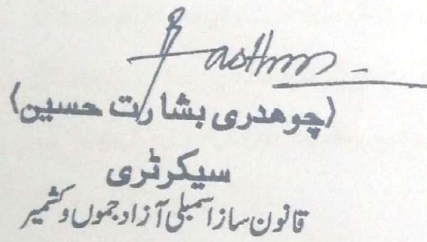 (چوهدری بشارت حسین)
سیکرٹری
قانون ساز اسمبلی آزاد جموں وکشمیر